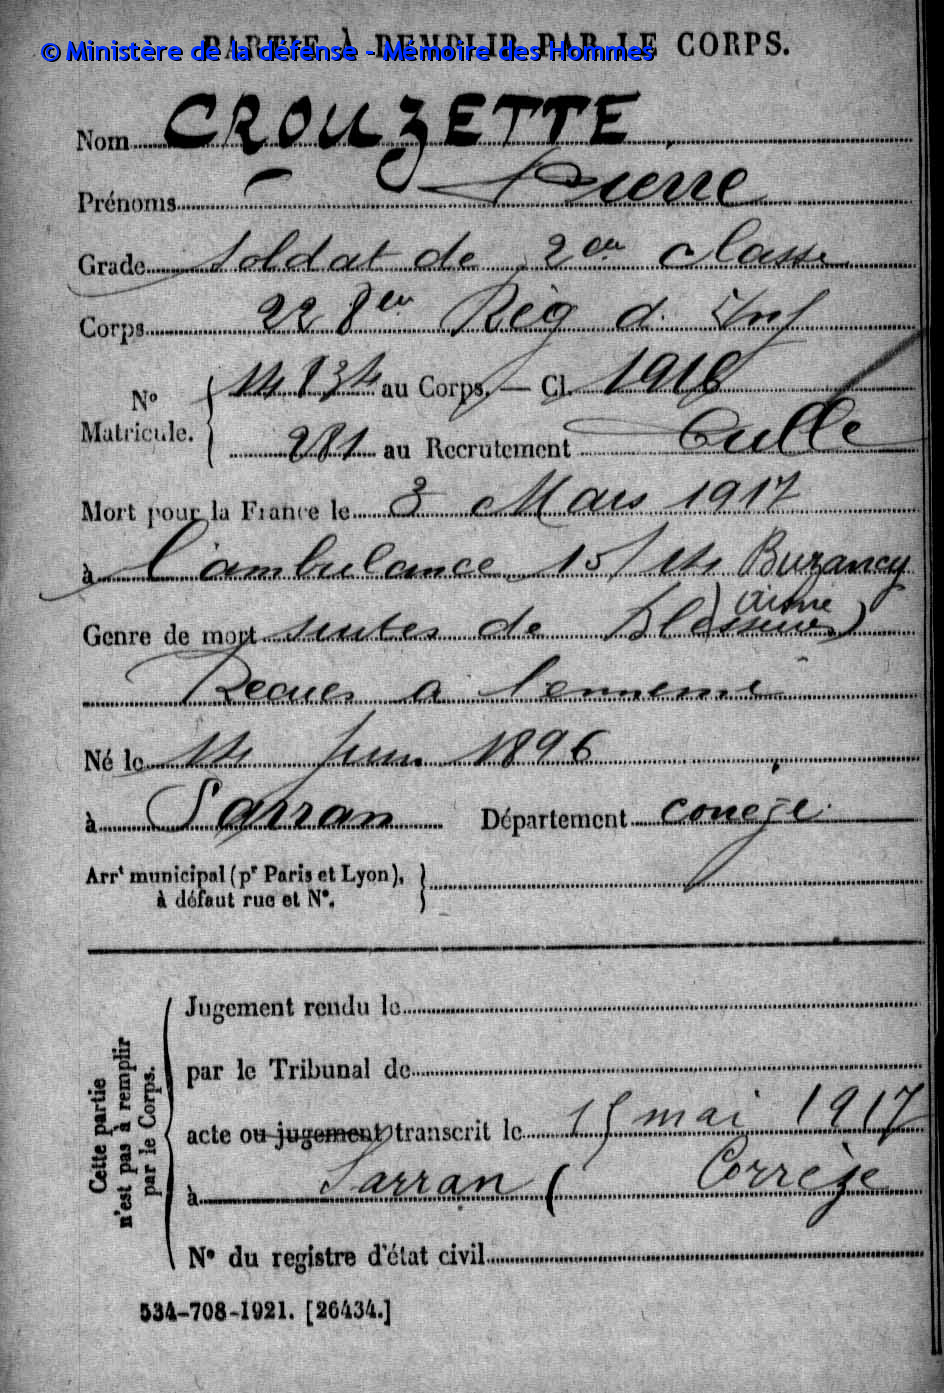 PARTIE À REMPLIR PAR LE CORPS.
© Ministère de la défense - Mémoire des Hommes
Nom CROUZETTE
Prénoms Pierre
Grade Soldat de 2eu classe
Corps 228eu Rég d. Inf
No Matricule. { 14834 au Corps. — Cl. 1916
281 au Recrutement Tulle
Mort pour la France le 3 Mars 1917
à l'ambulance 15/14 Buzancy
(Aisne)
Genre de mort suites de Blessures
Recues a l'ennemi
Né le 14 Juin 1896
à Sarran Département Corrèze
Arrt municipal (pr Paris et Lyon), à défaut rue et No. }
Cette partie n'est pas à remplir par le Corps.
Jugement rendu le
par le Tribunal de
acte ou jugement transcrit le 15 mai 1917
à Sarran (Corrèze
No du registre d'état civil
534-708-1921. [26434.]